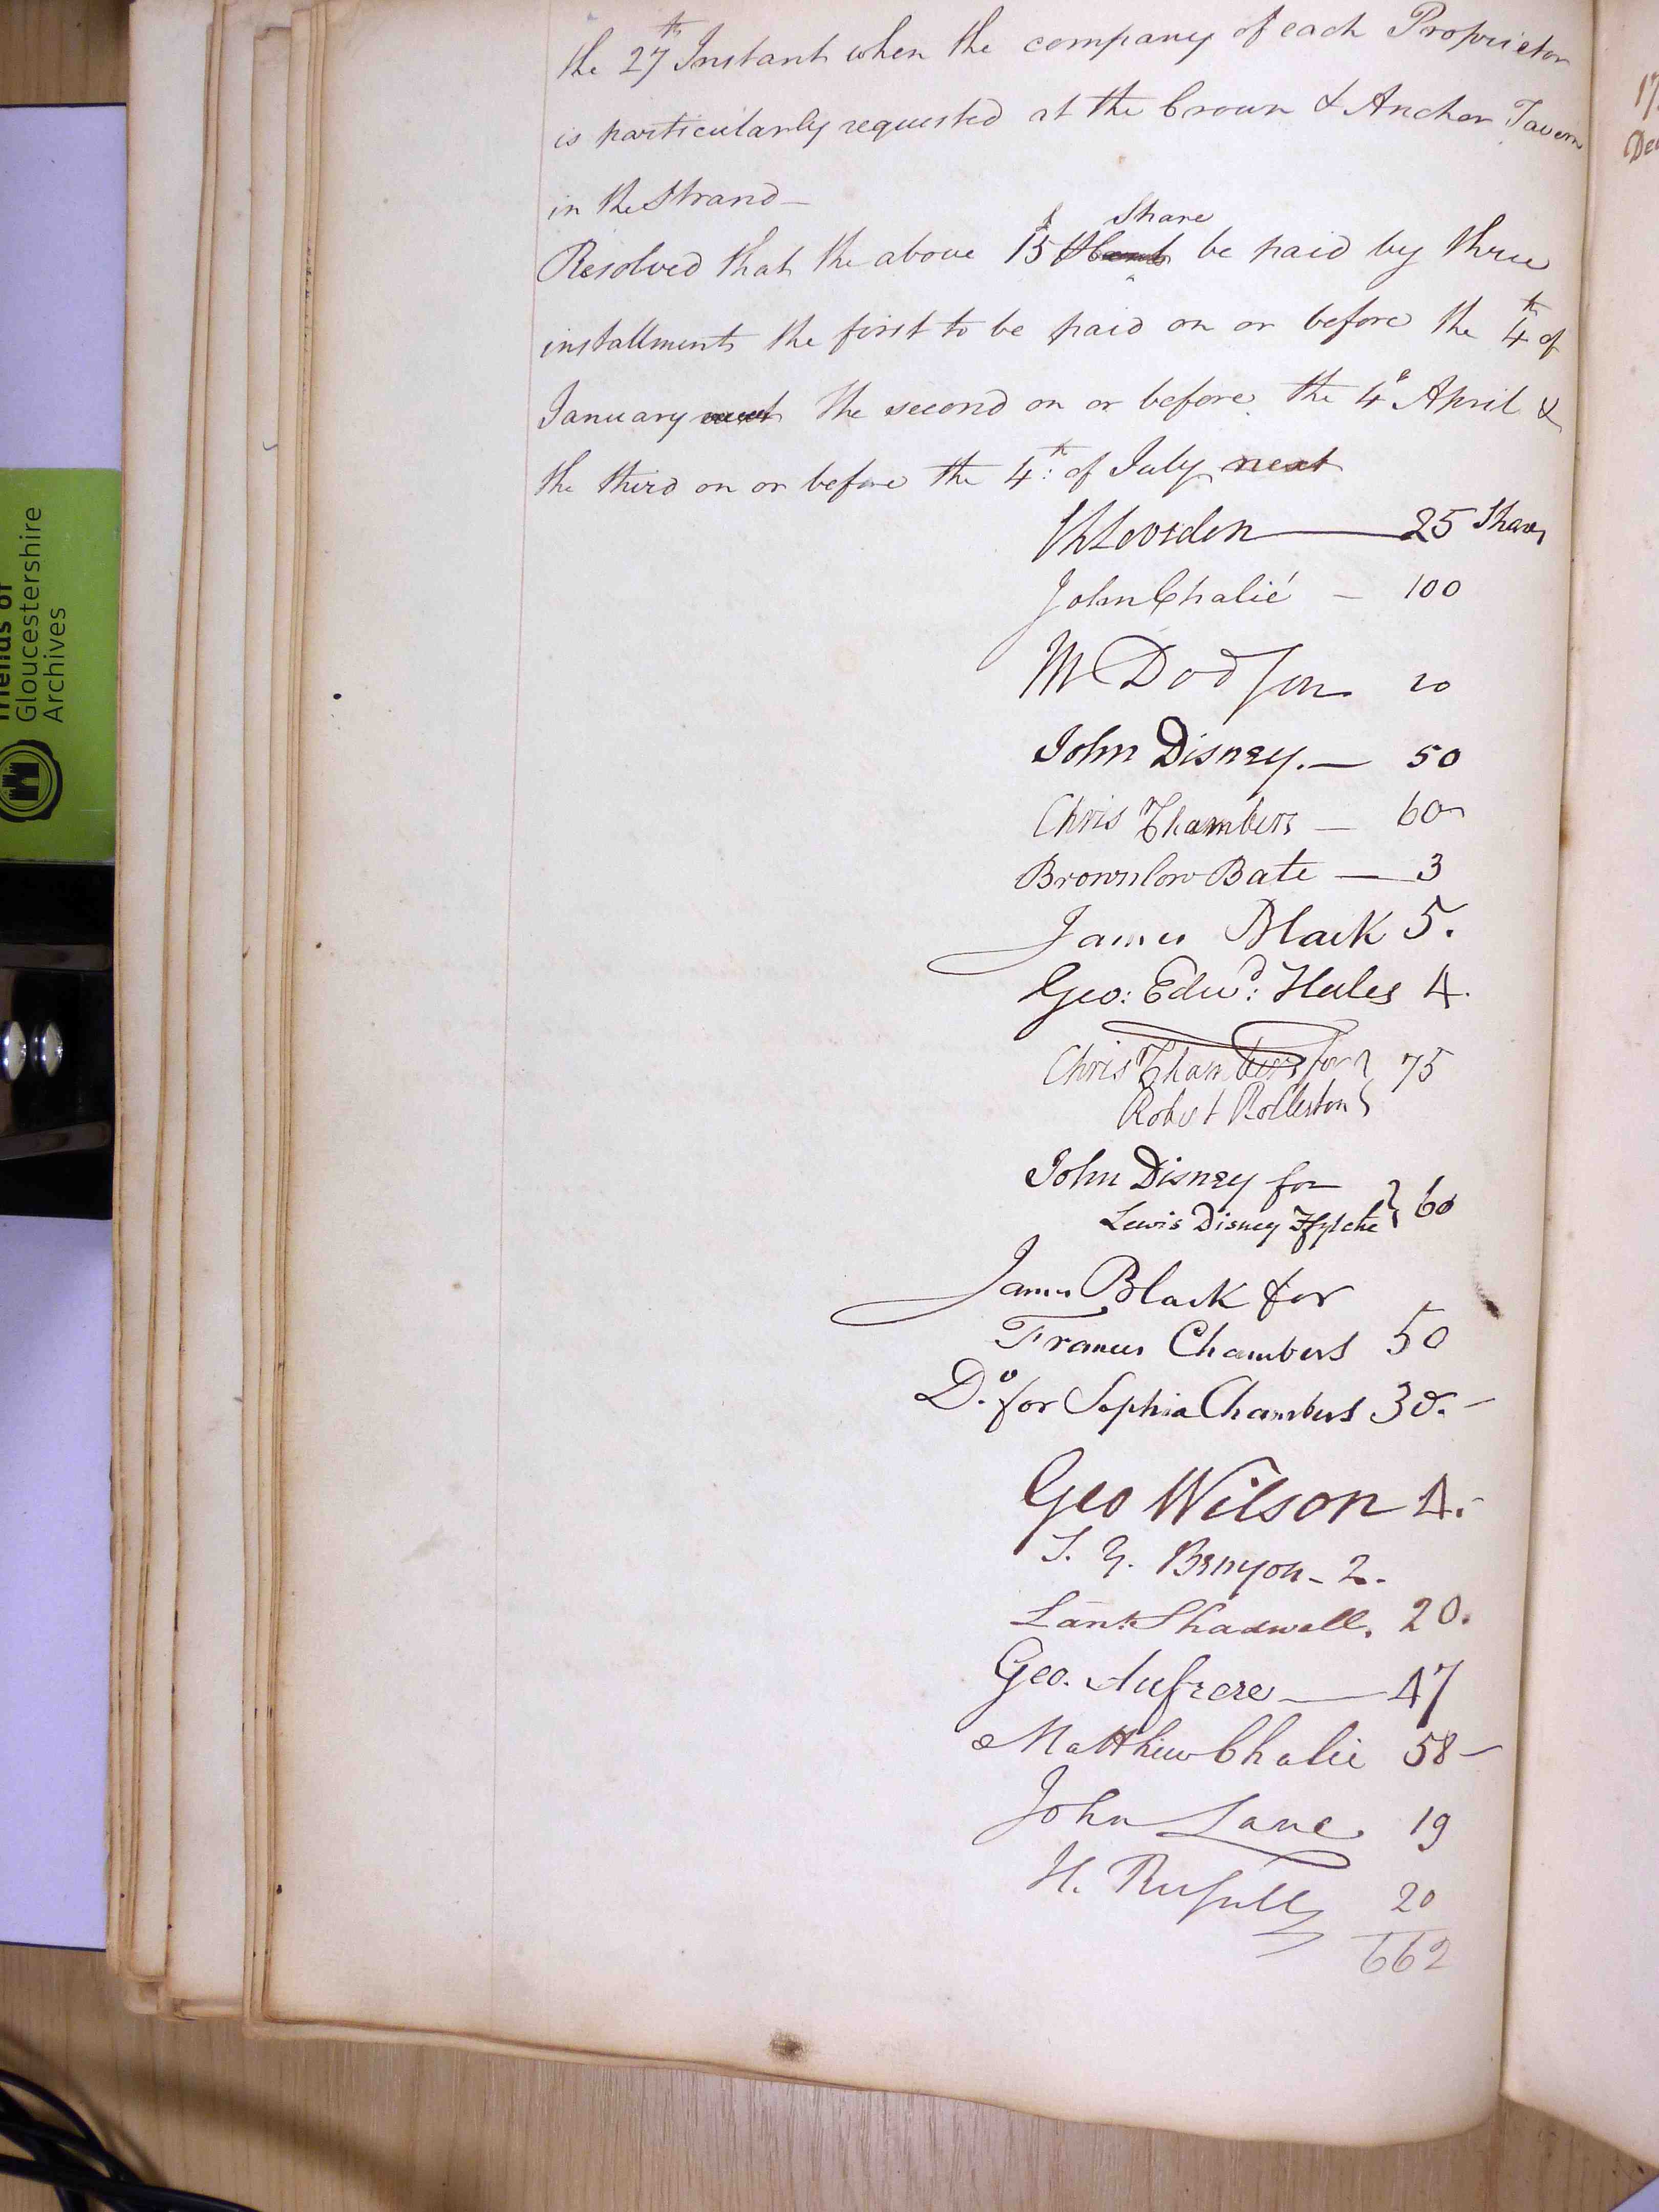 the 27th Instant when the company of each Proprietor
is particularly requested at the Crown & Anchor Tavern
in the Strand —
Share
Resolved that the above 15 £ be paid by three
installments the first to be paid on or before the 4th of
January next the second on or before the 4th April &
the third on or before the 4th: of July next
25 Shares
John Chalié — 100
M Dodson 20
John Disney. — 50
Chris Chambers — 60
Brownlow Bate — 3
James Black 5.
Geo: Edwd: Hales 4.
Chris Chambers for } 75
Robert Rolleston }
John Disney for } 60
Lewis Disney Ffytche }
James Black for
Frances Chambers 50
Do. for Sophia Chambers 30. —
Geo Wilson 4. -
Benyon - 2 -
Lant. Shadwell. 20.
Geo. Aufrere — 47
Matthew Chalié 58 —
John Lane 19
H. Russell 20
662
17
Dec
Friends of
Gloucestershire
Archives